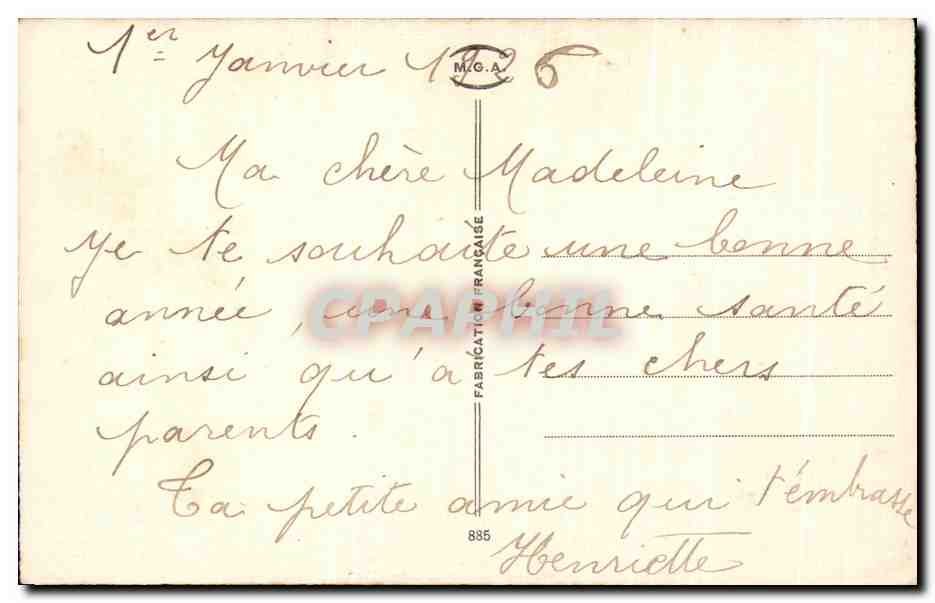 1er Janvier 1926
M.G.A.
Ma chère Madeleine
Je te souhaite une bonne
année, une bonne santé
ainsi qu'à tes chers
parents.
Ta petite amie qui t'embrasse
Henriette
FABRICATION FRANÇAISE
885
CPAPHIL